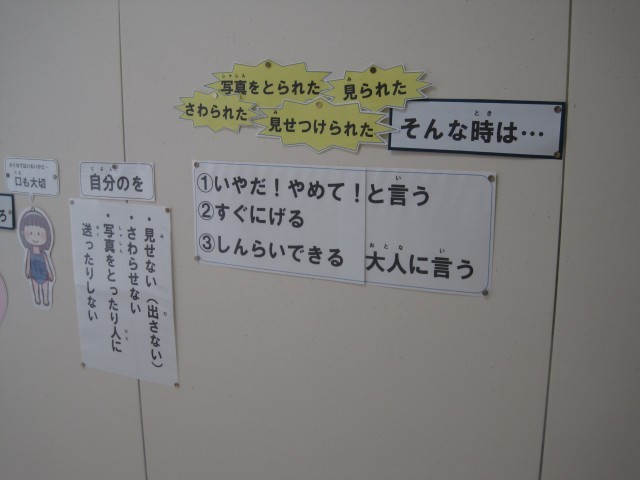 写真をとられた
見られた
さわられた
見せつけられた
そんな時は…
①いやだ！やめて！と言う
②すぐにげる
③しんらいできる 大人に言う
口も大切
自分のを
・見せない（出さない）
・さわらせない
・写真をとったり人に
送ったりしない
ろ